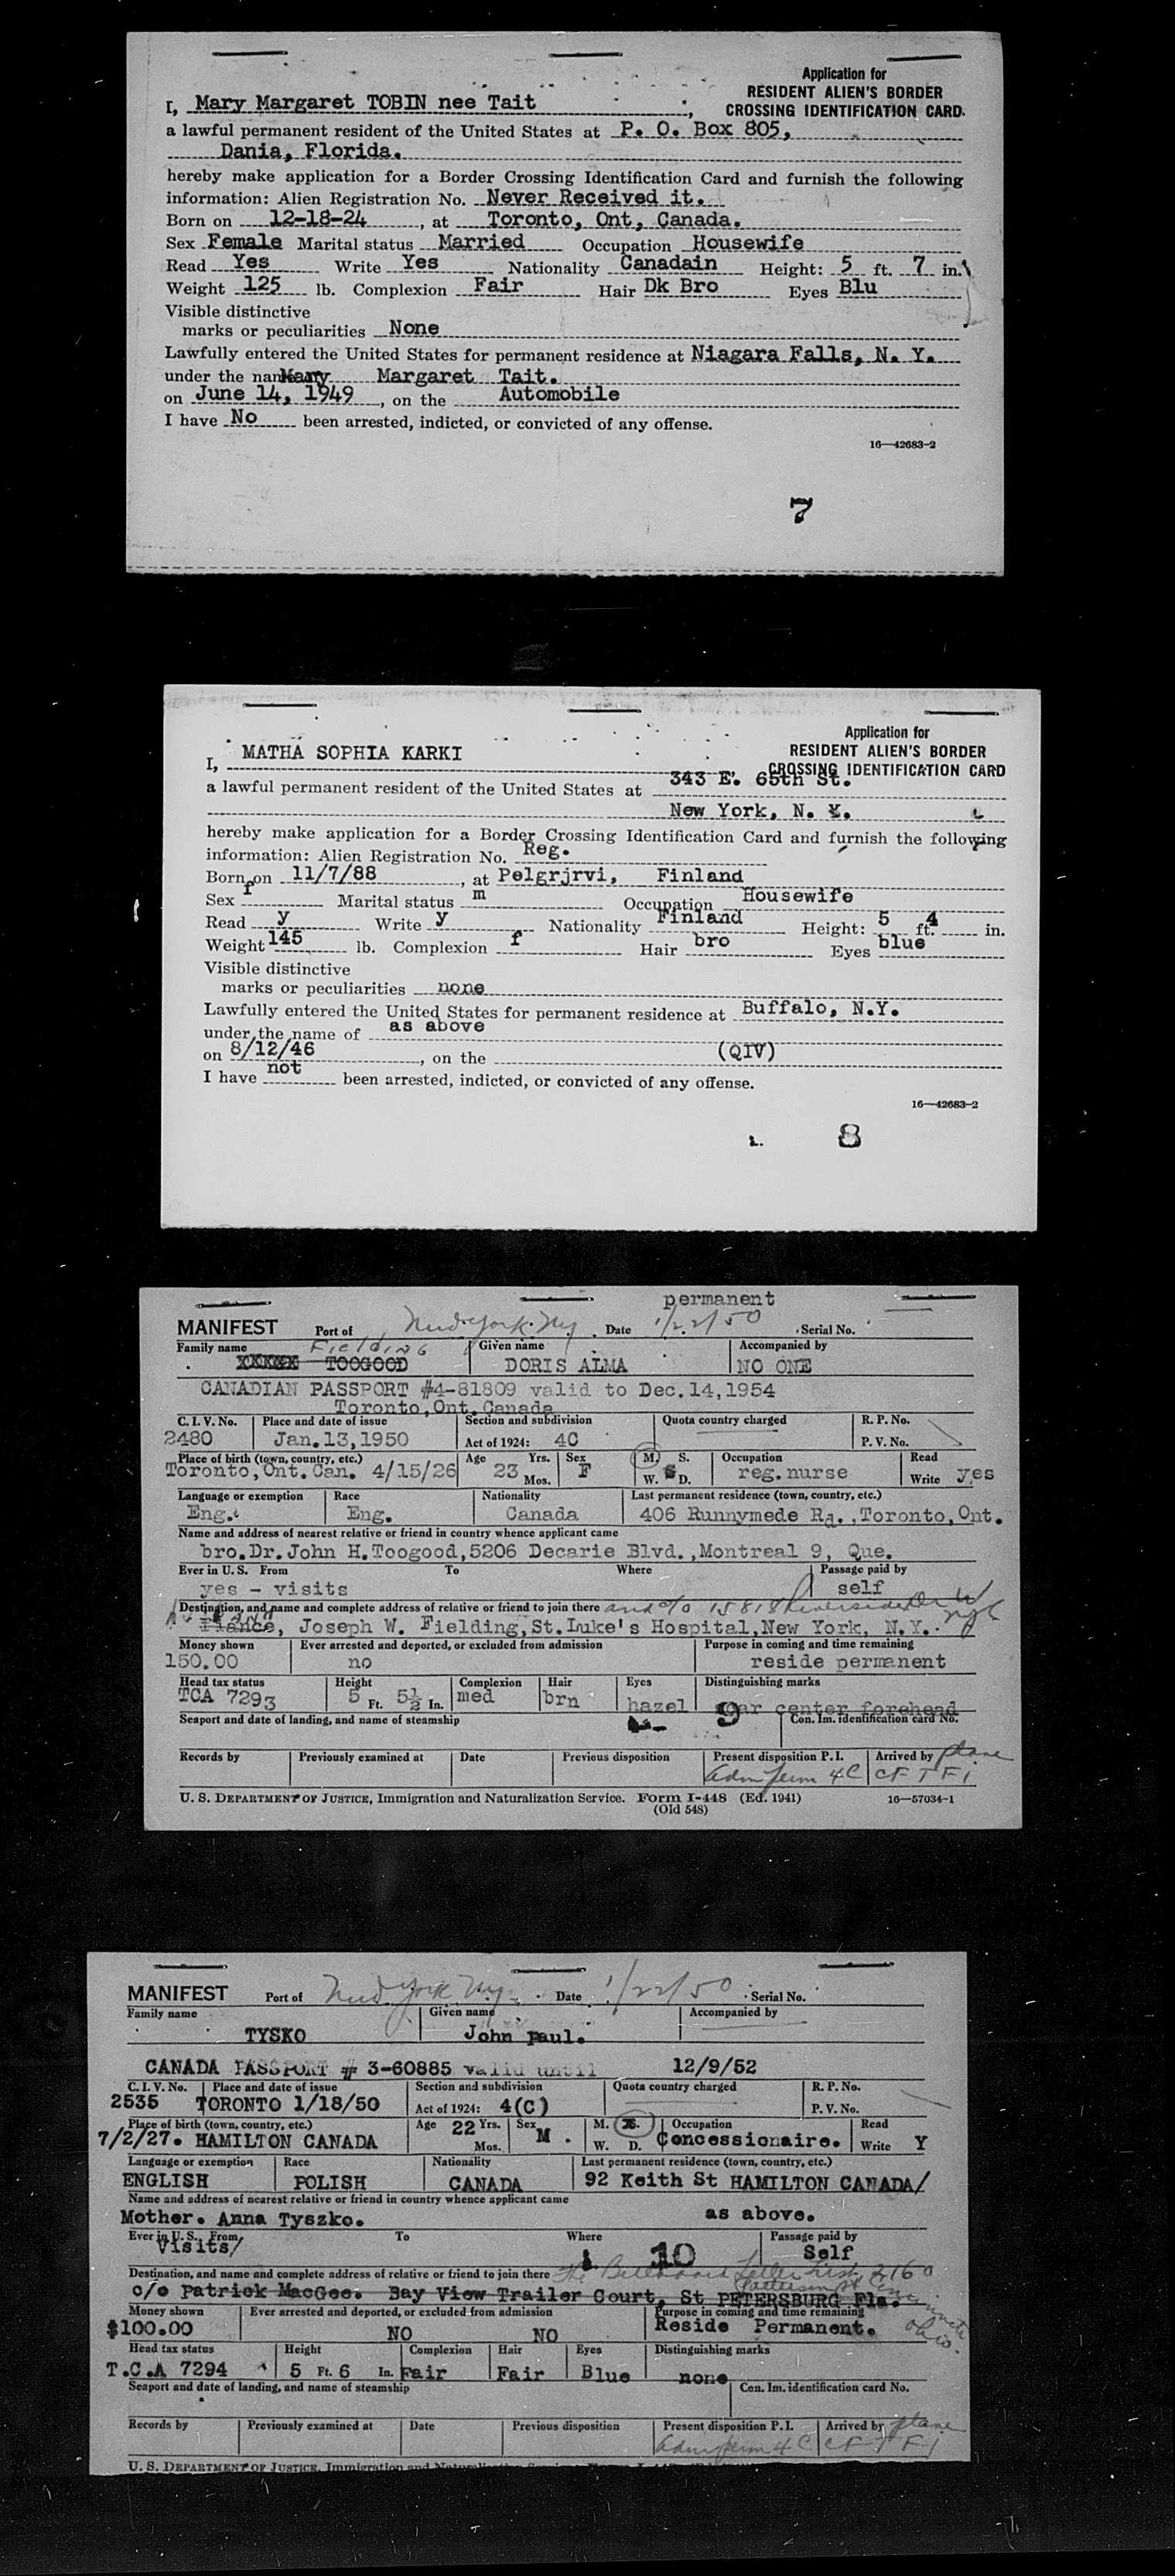 Application for
RESIDENT ALIEN'S BORDER
CROSSING IDENTIFICATION CARD.
I, Mary Margaret TOBIN nee Tait,
a lawful permanent resident of the United States at P. O. Box 805,
Dania, Florida.
hereby make application for a Border Crossing Identification Card and furnish the following
information: Alien Registration No. Never Received it.
Born on 12-18-24, at Toronto, Ont, Canada.
Sex Female Marital status Married Occupation Housewife
Read Yes Write Yes Nationality Canadain Height: 5 ft. 7 in.
Weight 125 lb. Complexion Fair Hair Dk Bro Eyes Blu
Visible distinctive
marks or peculiarities None
Lawfully entered the United States for permanent residence at Niagara Falls, N. Y.
under the name Mary Margaret Tait.
on June 14, 1949, on the Automobile
I have No been arrested, indicted, or convicted of any offense.
16—42683-2
7
Application for
RESIDENT ALIEN'S BORDER
CROSSING IDENTIFICATION CARD
I, MATHA SOPHIA KARKI
a lawful permanent resident of the United States at 343 E. 65th St.
New York, N. Y.
hereby make application for a Border Crossing Identification Card and furnish the following
information: Alien Registration No. Reg.
Born on 11/7/88, at Pelgrjrvi, Finland
Sex f Marital status m Occupation Housewife
Read y Write y Nationality Finland Height: 5 ft. 4 in.
Weight 145 lb. Complexion f Hair bro Eyes blue
Visible distinctive
marks or peculiarities none
Lawfully entered the United States for permanent residence at Buffalo, N.Y.
under the name of as above
on 8/12/46, on the (QIV)
I have not been arrested, indicted, or convicted of any offense.
16—42683-2
8
permanent
MANIFEST Port of New York Ny Date 1/22/50 Serial No.
Family name Given name Accompanied by
FIELDING
TOOGOOD DORIS ALMA NO ONE
CANADIAN PASSPORT #4-81809 valid to Dec.14,1954
Toronto,Ont.Canada
C. I. V. No. Place and date of issue Section and subdivision Quota country charged R. P. No.
2480 Jan.13,1950 Act of 1924: 4C P. V. No.
Place of birth (town, country, etc.) Age Yrs. Sex M. S. Occupation Read
Toronto,Ont.Can. 4/15/26 23 Mos. F W. D. reg.nurse Write yes
Language or exemption Race Nationality Last permanent residence (town, country, etc.)
Eng. Eng. Canada 406 Runnymede Rd.,Toronto,Ont.
Name and address of nearest relative or friend in country whence applicant came
bro.Dr.John H.Toogood,5206 Decarie Blvd.,Montreal 9, Que.
Ever in U. S. From To Where Passage paid by
yes - visits self
Destination, and name and complete address of relative or friend to join there and c/o Riverside Dr W
Fiance, Joseph W. Fielding,St.Luke's Hospital,New York, N.Y. NYC
Money shown Ever arrested and deported, or excluded from admission Purpose in coming and time remaining
150.00 no reside permanent
Head tax status Height Complexion Hair Eyes Distinguishing marks
TCA 7293 5 Ft. 5½ In. med brn hazel scar center forehead
9
Seaport and date of landing, and name of steamship Con. Im. identification card No.
Records by Previously examined at Date Previous disposition Present disposition P. I. Arrived by plane
Adm perm 4C CF TFI
U. S. DEPARTMENT OF JUSTICE, Immigration and Naturalization Service. Form I-448 (Ed. 1941) 16—57034-1
(Old 548)
MANIFEST Port of New York Ny. Date 1/22/50 Serial No.
Family name Given name Accompanied by
TYSKO John Paul.
CANADA PASSPORT # 3-60885 valid until 12/9/52
C. I. V. No. Place and date of issue Section and subdivision Quota country charged R. P. No.
2535 TORONTO 1/18/50 Act of 1924: 4(C) P. V. No.
Place of birth (town, country, etc.) Age 22 Yrs. Sex M. S. Occupation Read
7/2/27. HAMILTON CANADA Mos. M. W. D. Concessionaire. Write Y
Language or exemption Race Nationality Last permanent residence (town, country, etc.)
ENGLISH POLISH CANADA 92 Keith St HAMILTON CANADA/
Name and address of nearest relative or friend in country whence applicant came
Mother. Anna Tyszko. as above.
Ever in U. S. From To Where Passage paid by
Visits/ 10 Self
Destination, and name and complete address of relative or friend to join there The Billboard Letter List 2160
Patterson St Cincinnati Ohio.
c/o Patrick MacGee. Bay View Trailer Court, St PETERSBURG Fla.
Money shown Ever arrested and deported, or excluded from admission Purpose in coming and time remaining
$100.00 NO NO Reside Permanent.
Head tax status Height Complexion Hair Eyes Distinguishing marks
T.C.A 7294 5 Ft. 6 In. Fair Fair Blue none
Seaport and date of landing, and name of steamship Con. Im. identification card No.
Records by Previously examined at Date Previous disposition Present disposition P. I. Arrived by plane
Adm perm 4C CF T F1
U. S. DEPARTMENT OF JUSTICE, Immigration and